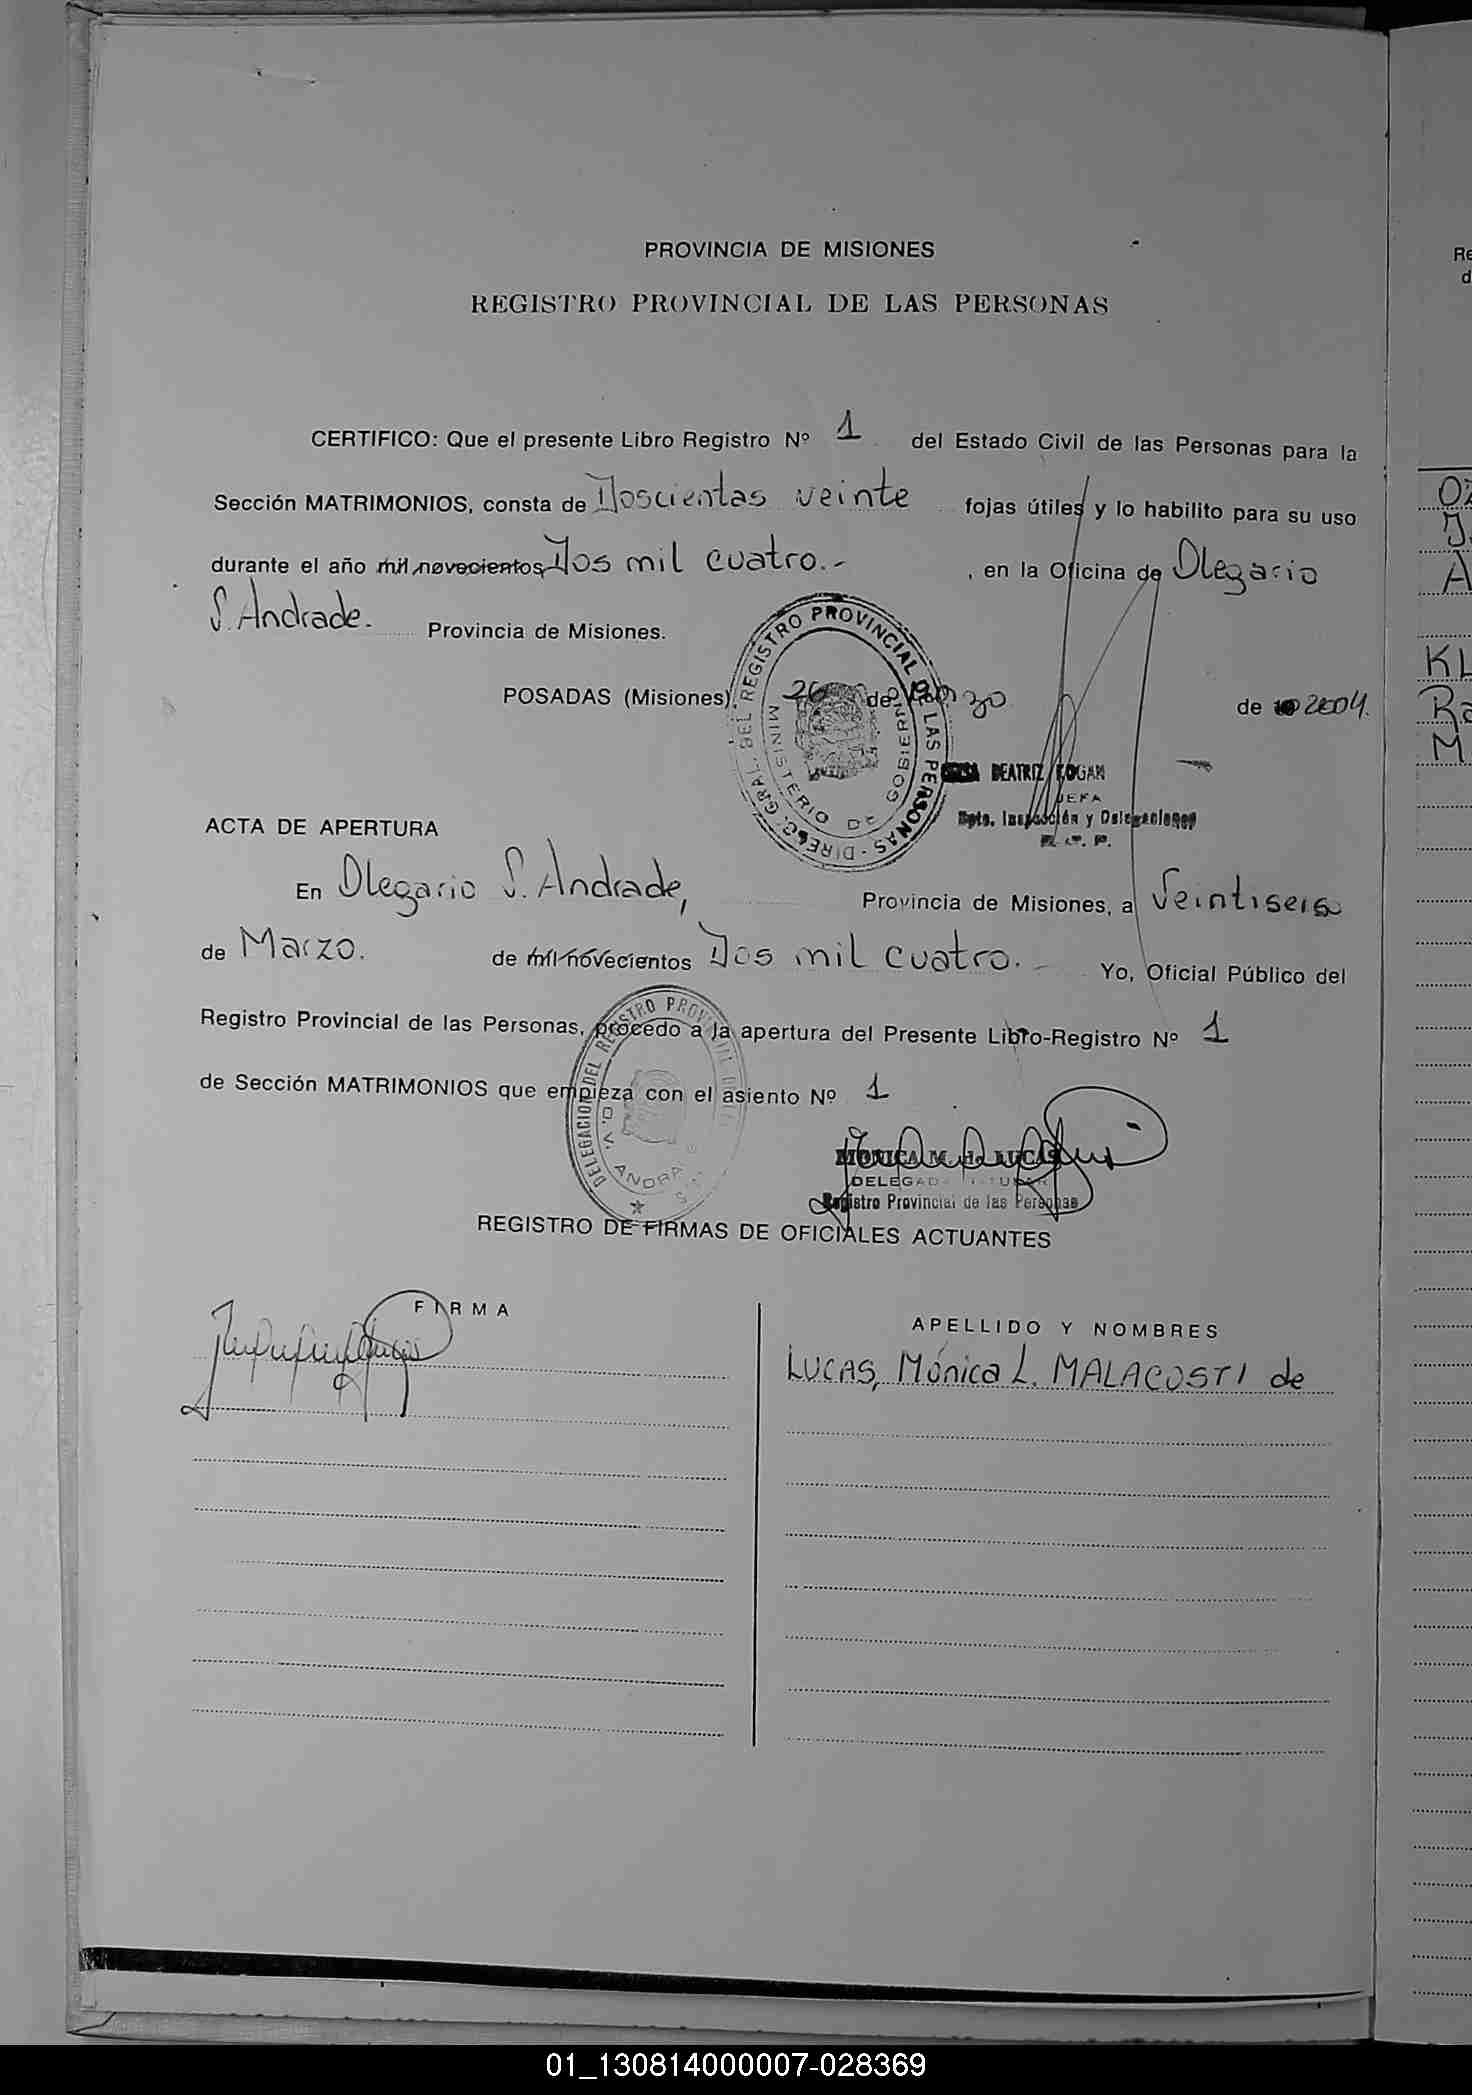 PROVINCIA DE MISIONES
REGISTRO PROVINCIAL DE LAS PERSONAS
CERTIFICO: Que el presente Libro Registro Nº 1 del Estado Civil de las Personas para la
Sección MATRIMONIOS, consta de Doscientas veinte fojas útiles y lo habilito para su uso
durante el año mil novecientos Dos mil cuatro.- , en la Oficina de Olegario
S. Andrade. Provincia de Misiones.
POSADAS (Misiones), 26 de Marzo de 2004.
DIREC. GRAL. DEL REGISTRO PROVINCIAL DE LAS PERSONAS
MINISTERIO DE GOBIERNO
BEATRIZ KOGAN
JEFA
Dpto. Inspección y Delegaciones
R. P. P.
ACTA DE APERTURA
En Olegario S. Andrade, Provincia de Misiones, a Veintiseis
de Marzo. de mil novecientos Dos mil cuatro. Yo, Oficial Público del
Registro Provincial de las Personas, procedo a la apertura del Presente Libro-Registro Nº 1
de Sección MATRIMONIOS que empieza con el asiento Nº 1
DELEGACION DEL REGISTRO PROVINCIAL
O. V. ANDRADE
MONICA M. de LUCAS
DELEGADA TITULAR
Registro Provincial de las Personas
REGISTRO DE FIRMAS DE OFICIALES ACTUANTES
FIRMA
APELLIDO Y NOMBRES
LUCAS, Mónica L. MALACOSTI de
Re
d
KL
Ra
M
01_130814000007-028369